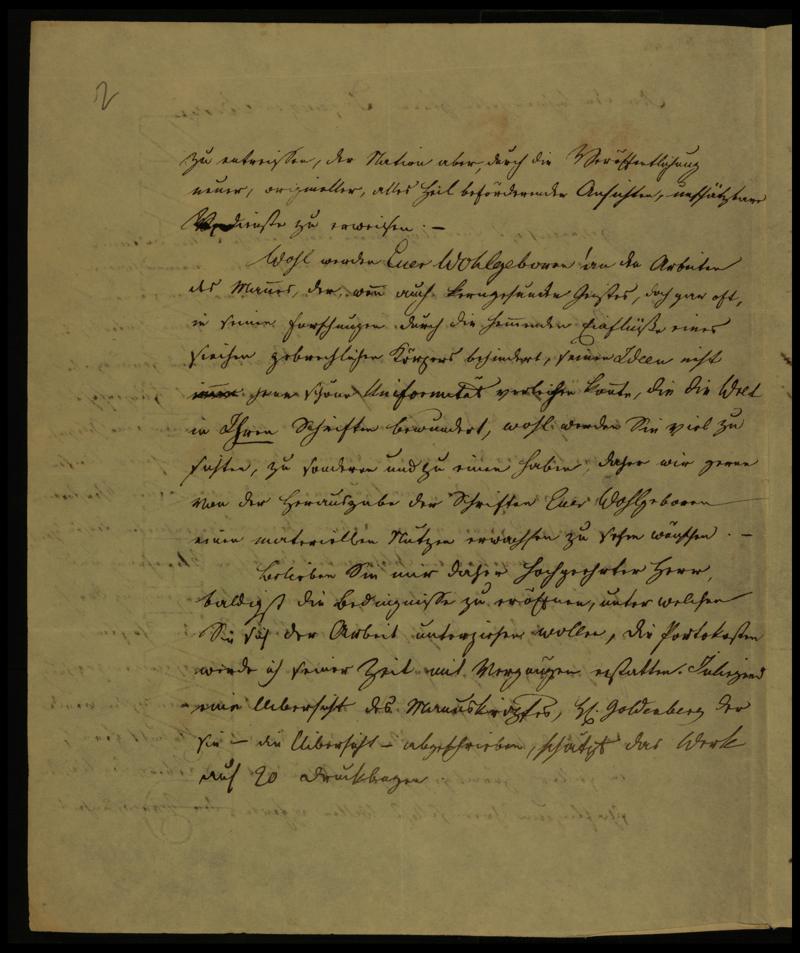 2
zu entreissen, der Nation aber, durch die Veröffentlichung
neuer, origineller, alles Heil befördernder Ansichten, unschätzbare
Verdienste zu erweisen. –
Wohl werden Euer Wohlgeboren an den Arbeiten
des Mannes, der, wenn auch kerngesunden Geistes, doch gar oft,
in seinen Forschungen durch die hemmenden Einflüße eines
siechen gebrechlichen Körpers behindert, seinen Ideen nicht
jene schöne Uniformität verleihen konnte, die die Welt
in Ihren Schriften bewundert, wohl werden Sie viel zu
sichten, zu sondern und zu einen haben, daher wir gerne
von der Herausgabe der Schriften Euer Wohlgeboren
einen materiellen Nutzen erwachsen zu sehen wünschen. –
Belieben Sie mir daher hochgeehrter Herr,
baldigst die Bedingnisse zu eröffnen, unter welchen
Sie sich der Arbeit unterziehen wollen, die Portokosten
werde ich seiner Zeit mit Vergnügen erstatten. Inliegend
eine Uibersicht des Manuskriptes, H. Goldenberg der
sie – die Uibersicht – abgeschrieben, schätzt das Werk
auf 20 Druckbogen